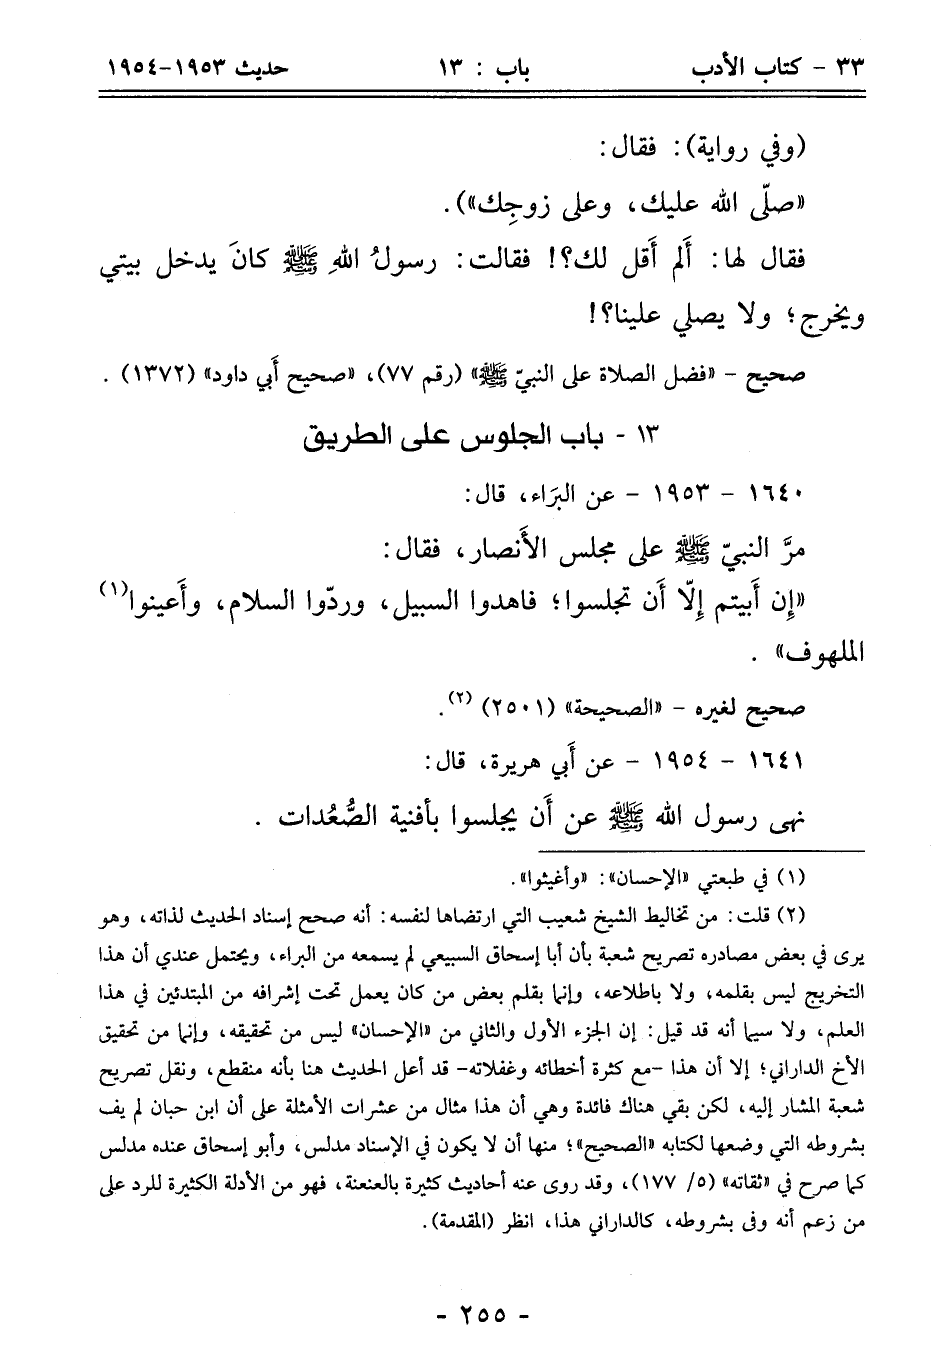 ٣٣ - كتاب الأدب باب : ١٣ حديث ١٩٥٣-١٩٥٤
(وفي رواية): فقال:
«صلّى الله عليك، وعلى زوجِك»).
فقال لها: أَلم أَقل لك؟! فقالت: رسولُ اللهِ ﷺ كانَ يدخل بيتي
ويخرج؛ ولا يصلي علينا؟!
صحيح - «فضل الصلاة على النبيّ ﷺ» (رقم ٧٧)، «صحيح أَبي داود» (١٣٧٢) .
١٣ - باب الجلوس على الطريق
١٦٤٠ - ١٩٥٣ - عن البَراء، قال:
مرَّ النبيّ ﷺ على مجلس الأَنصار، فقال:
«إِن أَبيتم إِلّا أَن تجلسوا؛ فاهدوا السبيل، وردّوا السلام، وأَعينوا(١)
الملهوف» .
صحيح لغيره - «الصحيحة» (٢٥٠١) (٢).
١٦٤١ - ١٩٥٤ - عن أَبي هريرة، قال:
نهى رسول الله ﷺ عن أَن يجلسوا بأفنية الصُّعُدات .
(١) في طبعتي «الإحسان»: «وأغيثوا».
(٢) قلت: من تخاليط الشيخ شعيب التي ارتضاها لنفسه: أنه صحح إسناد الحديث لذاته، وهو
يرى في بعض مصادره تصريح شعبة بأن أبا إسحاق السبيعي لم يسمعه من البراء، ويحتمل عندي أن هذا
التخريج ليس بقلمه، ولا باطلاعه، وإنما بقلم بعض من كان يعمل تحت إشرافه من المبتدئين في هذا
العلم، ولا سيما أنه قد قيل: إن الجزء الأول والثاني من «الإحسان» ليس من تحقيقه، وإنما من تحقيق
الأخ الداراني؛ إلا أن هذا -مع كثرة أخطائه وغفلاته- قد أعل الحديث هنا بأنه منقطع، ونقل تصريح
شعبة المشار إليه، لكن بقي هناك فائدة وهي أن هذا مثال من عشرات الأمثلة على أن ابن حبان لم يف
بشروطه التي وضعها لكتابه «الصحيح»؛ منها أن لا يكون في الإسناد مدلس، وأبو إسحاق عنده مدلس
كما صرح في «ثقاته» (٥/ ١٧٧)، وقد روى عنه أحاديث كثيرة بالعنعنة، فهو من الأدلة الكثيرة للرد على
من زعم أنه وفى بشروطه، كالداراني هذا، انظر (المقدمة).
- ٢٥٥ -